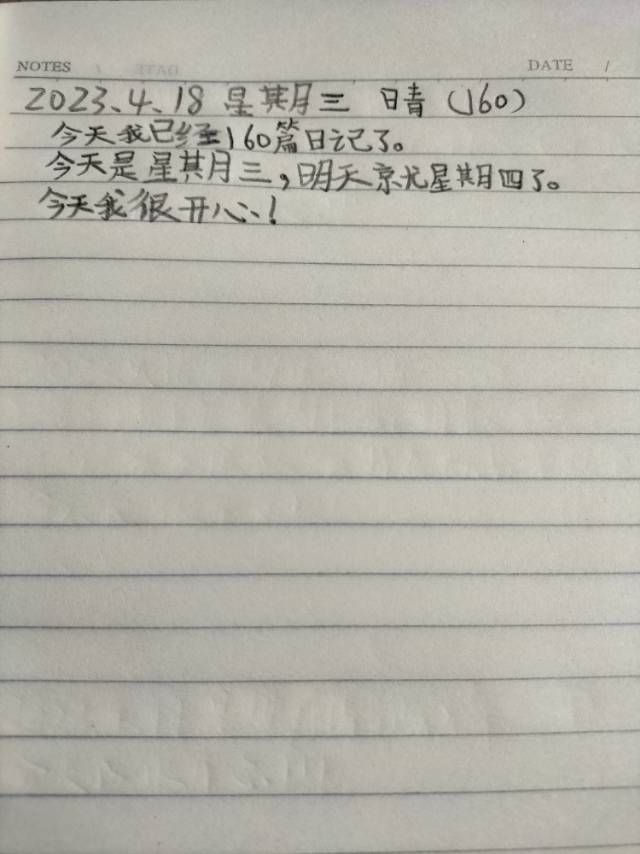 NOTES
DATE /
2023.4.18 星期三 晴(160)
今天我已经160篇日记了。
今天是星期三,明天就星期四了。
今天我很开心!